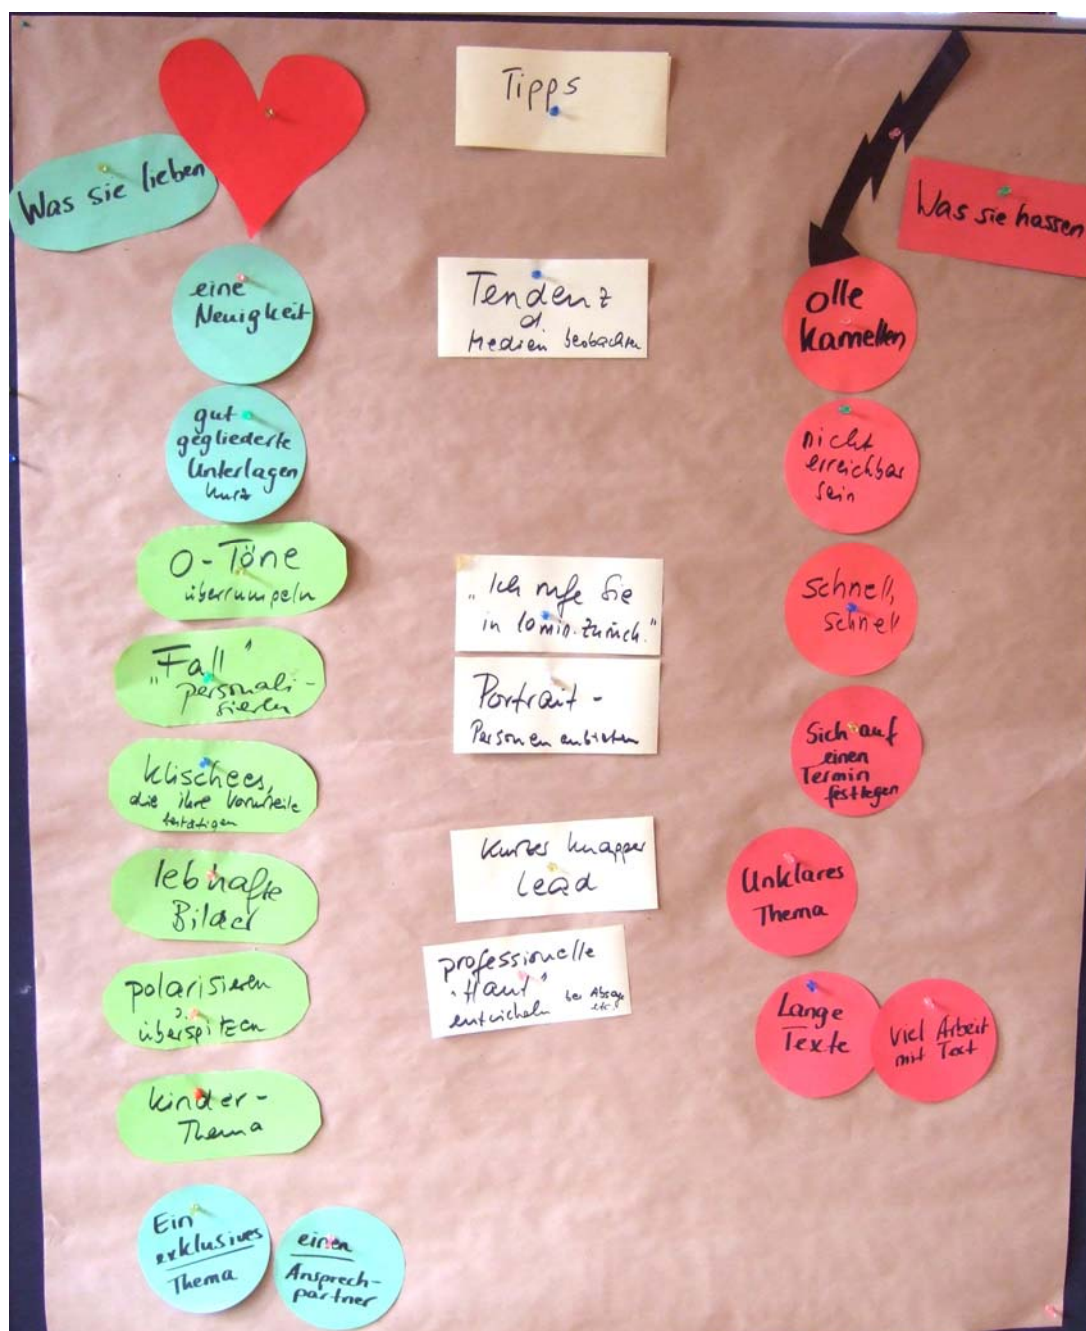 Was sie lieben
eine
Neuigkeit
gut
gegliederte
Unterlagen
kurz
O-Töne
überrumpeln
„Fall"
personali-
sieren
Klischees,
die ihre Vorurteile
bestätigen
lebhafte
Bilder
polarisieren
überspitzen
Kinder-
Thema
Ein
exklusives
Thema
einen
Ansprech-
partner
Tipps
Tendenz
d.
Medien beobachten
„Ich rufe Sie
in 10 min. zurück."
Portrait-
Personen anbieten
kurzer knapper
Lead
professionelle
„Haut"
entwickeln bei Absage
etc.
Was sie hassen
olle
Kamellen
nicht
erreichbar
sein
schnell,
schnell
Sich auf
einen
Termin
festlegen
Unklares
Thema
Lange
Texte
Viel Arbeit
mit Text